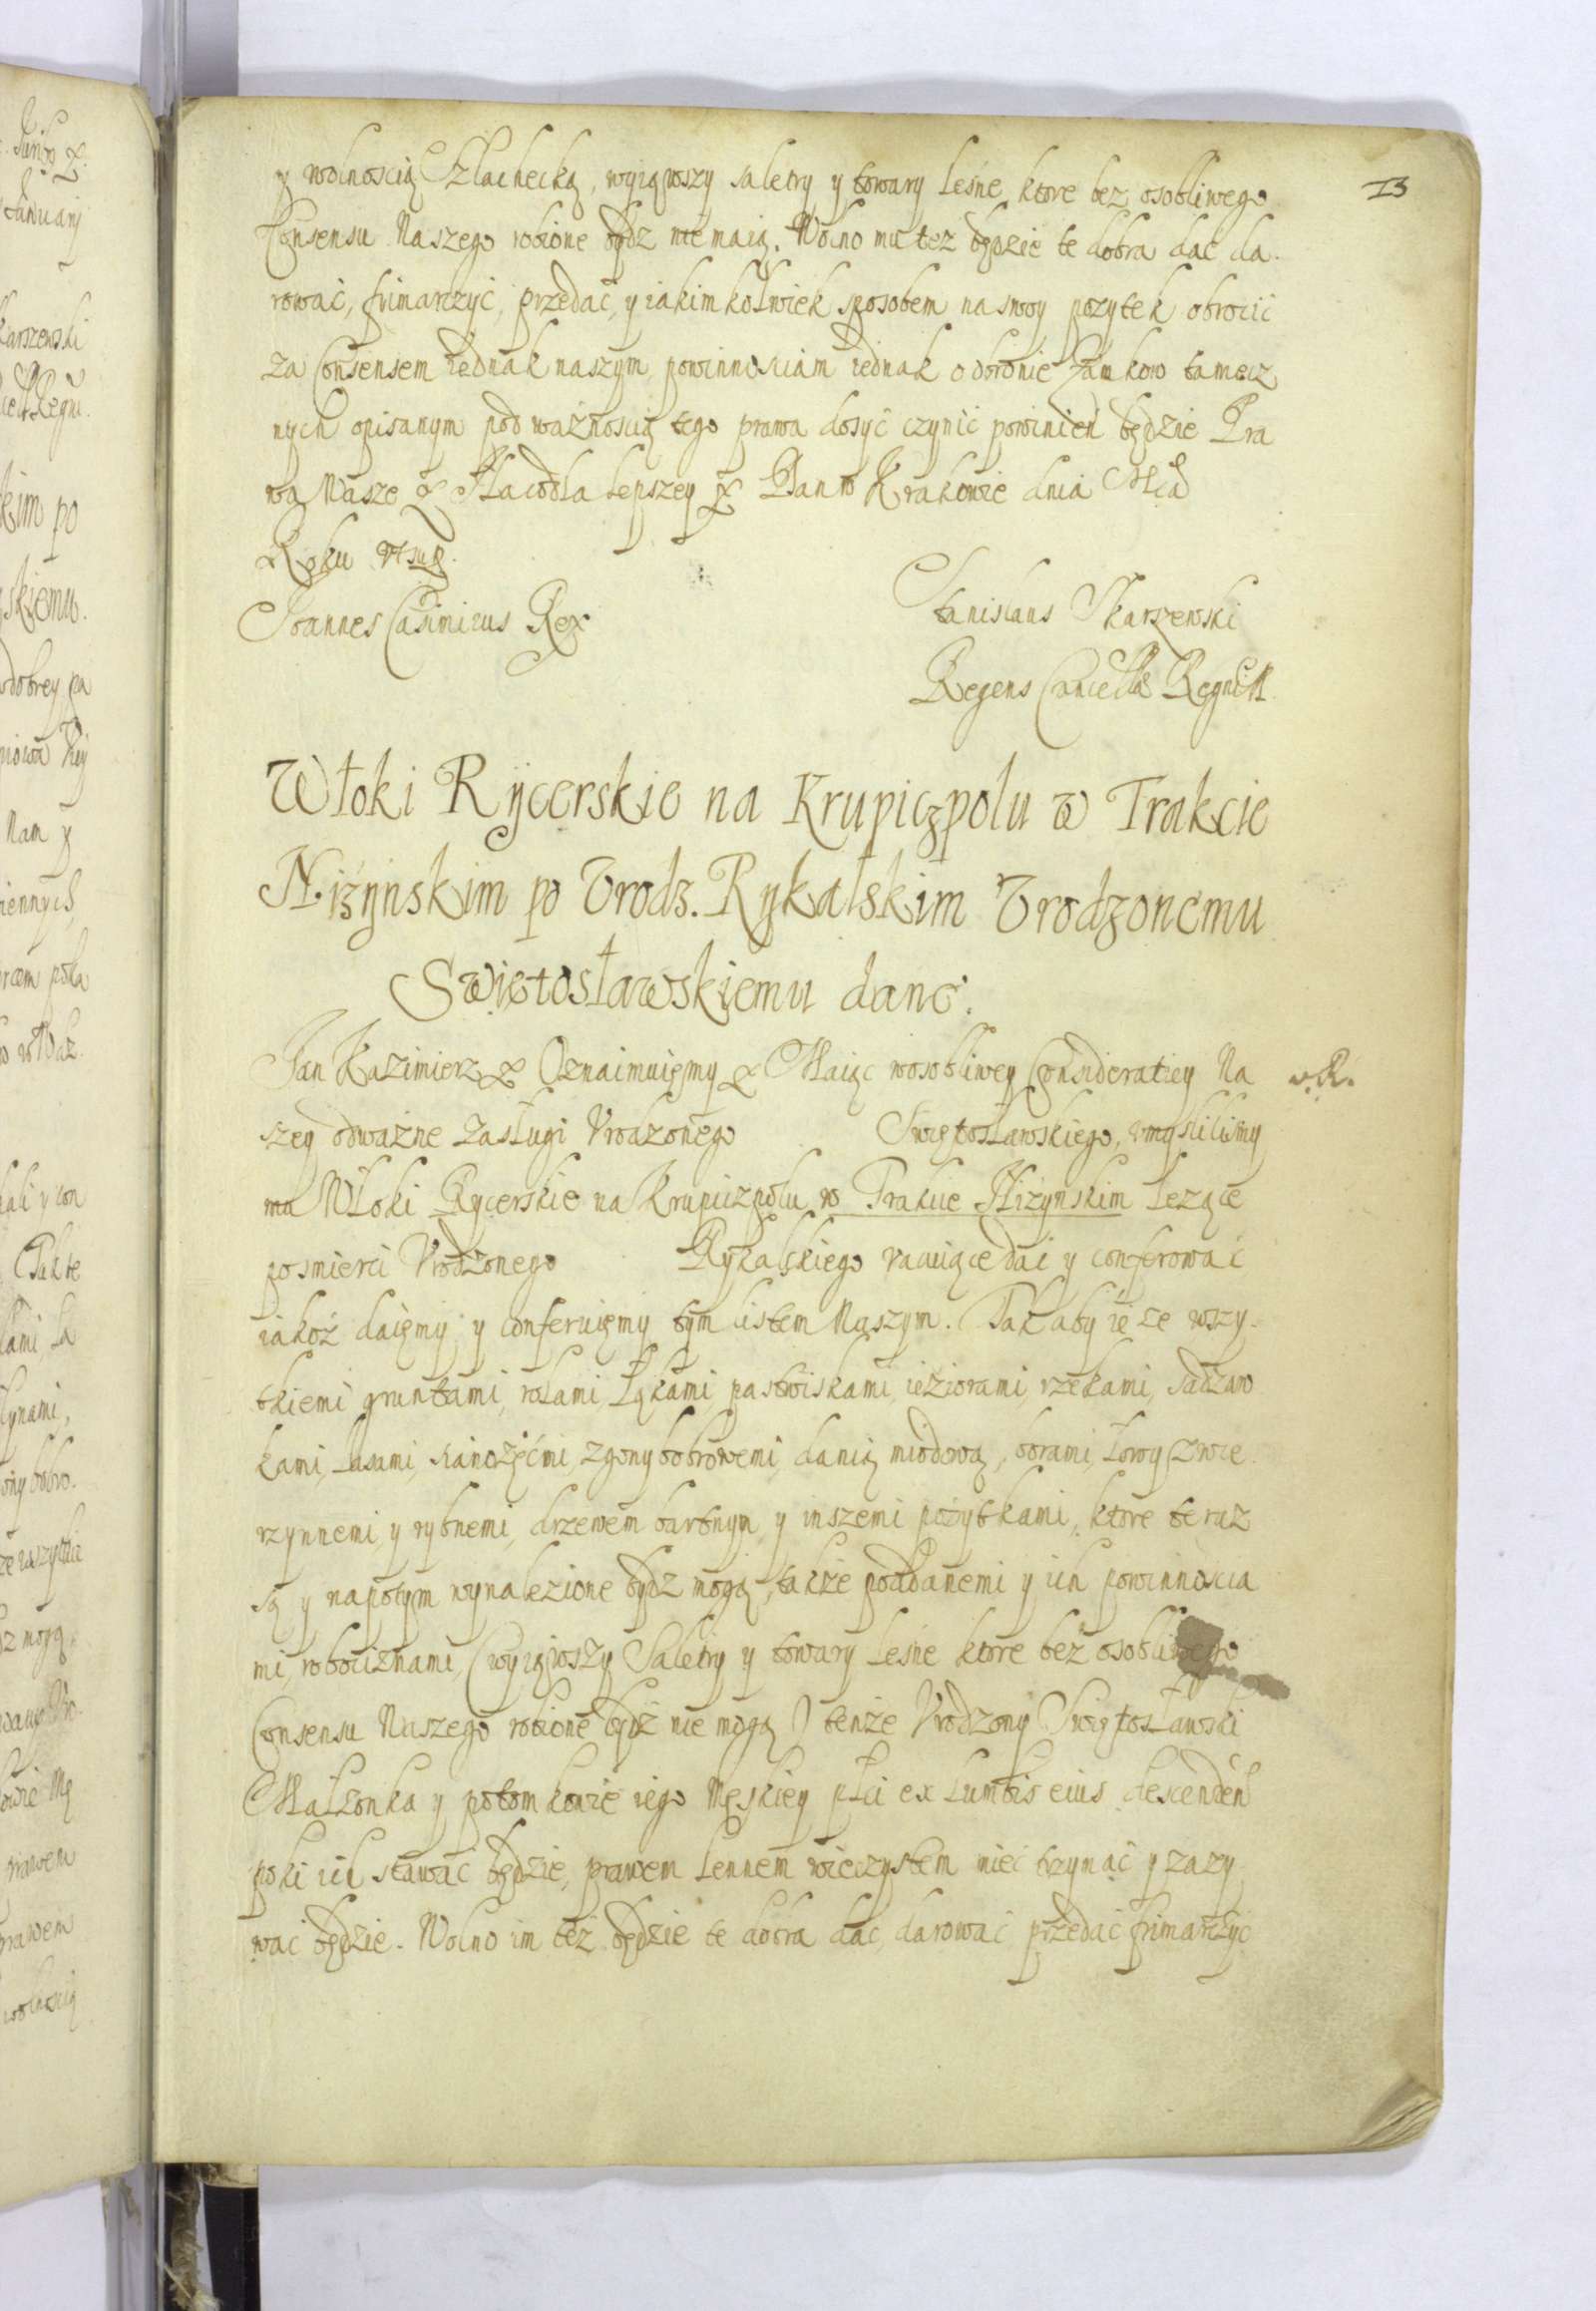 13
y wolnoscią Szlachecką, wyiąwszy saletry y towary leśne, ktore bez osobliwego
Consensu Naszego robione bydz nie maią. Wolno mu tez będzie te dobra dać da-
rować, frimarczyć, przedać, y iakimkolwiek sposobem na swoy pozytek obrocić
za Consensem iednak naszym, powinnosciam iednak o obronie Zamkow tamecz
nych opisanym pod ważnoscią tego prawa dosyć czynić powinien będzie Pra
wa Nasze & Na co dla lepszey & Dan w Krakowie dnia Mca
Roku vt sup.
Joannes Casimirus Rex
Stanislaus Skarszewski
Regens Cancellae Regni M
Włoki Rycerskie na Krupiczpolu w Trakcie
Niżynskim po Vrodz. Rykalskim Vrodzonemu
Swiętosławskiemu dane.
Jan Kazimierz & Oznaimuięmy & Maiąc w osobliwey Consideratiey Na
w. R.
szey odważne zasługi Vrodzonego Swiętosławskiego, vmysliliśmy
mu Włoki Rycerskie na Krupiczpolu w Trakcie Niżynskim lezące
po smierci Vrodzonego Rykalskiego vacuiące dać y conferować
iakoż daięmy y conferuięmy tym listem Naszym. Tak aby ie ze wszy-
tkiemi gruntami, rolami, łąkami, pastwiskami, ieżiorami, rzekami, sadzaw
kami, lasami, sianożęćmi, zgony bobrowemi, danią miodową, borami, łowy zwie
rzynnemi, y rybnemi, drzewem bartnym, y inszemi pożytkami, ktore teraz
są y napotym wynalezione bydz mogą, także poddanemi y ich powinnoscia
mi, robociznami, (wyiąwszy Saletry y towary leśne ktore bez osobliwego
Consensu Naszego robione bydź nie mogą) tenże Vrodzony Swiętosławski
Małzonka y potomkowie iego Męskiey płci ex lumbis eius descenden
poki ich stawać będzie, prawem lennem wieczystem mieć trzymać y zazy
wać będzie. Wolno im też będzie te dobra dać, darować przedać frimarczyć